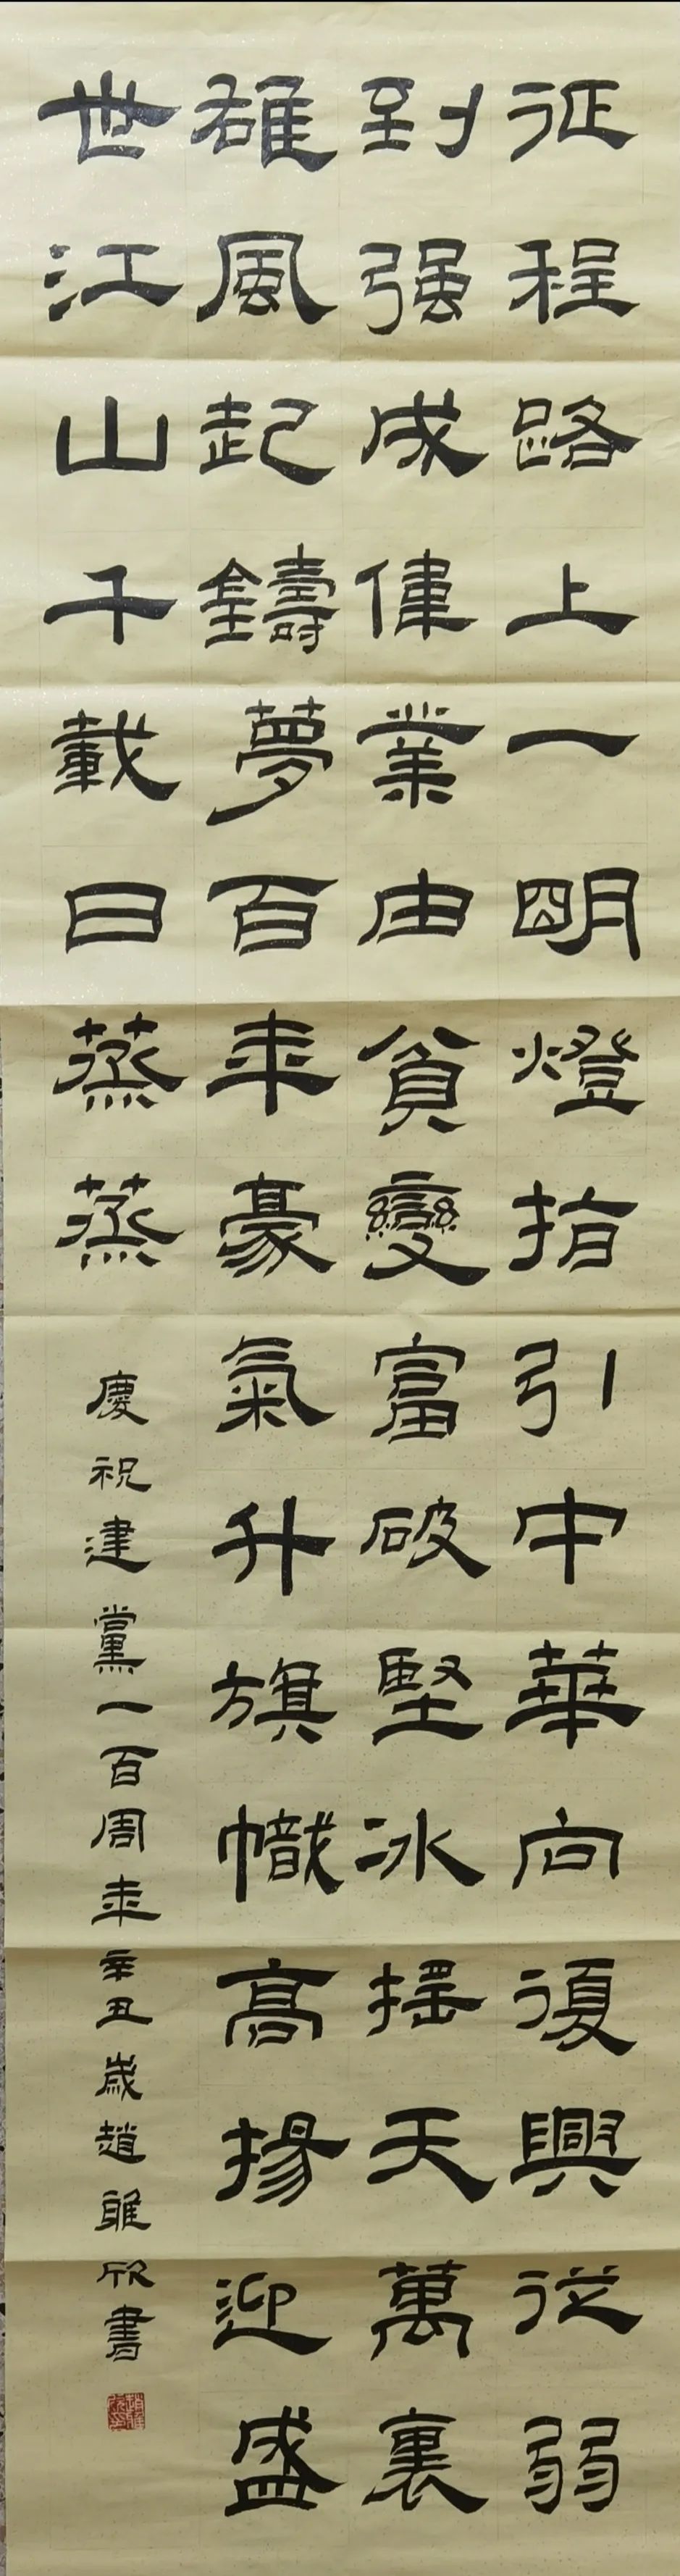 征程路上一明燈指引中華向復興從弱
到强成偉業由貧變富破堅冰摇天萬裏
雄風起鑄夢百年豪氣升旗幟高揚迎盛
世江山千載日蒸蒸
慶祝建黨一百周年辛丑歲趙雅欣書